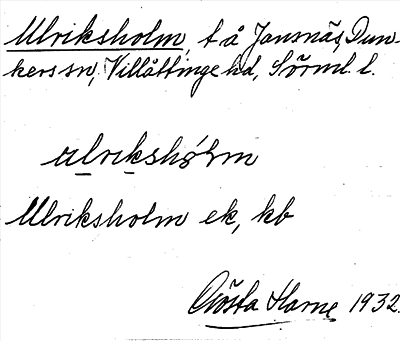 Ulriksholm, t å Jansnäs, Dun-
kers sn, Villåttinge hd, Sörml. l.
ulrikshólm
Ulriksholm ek, kb
Gösta Harne 1932.